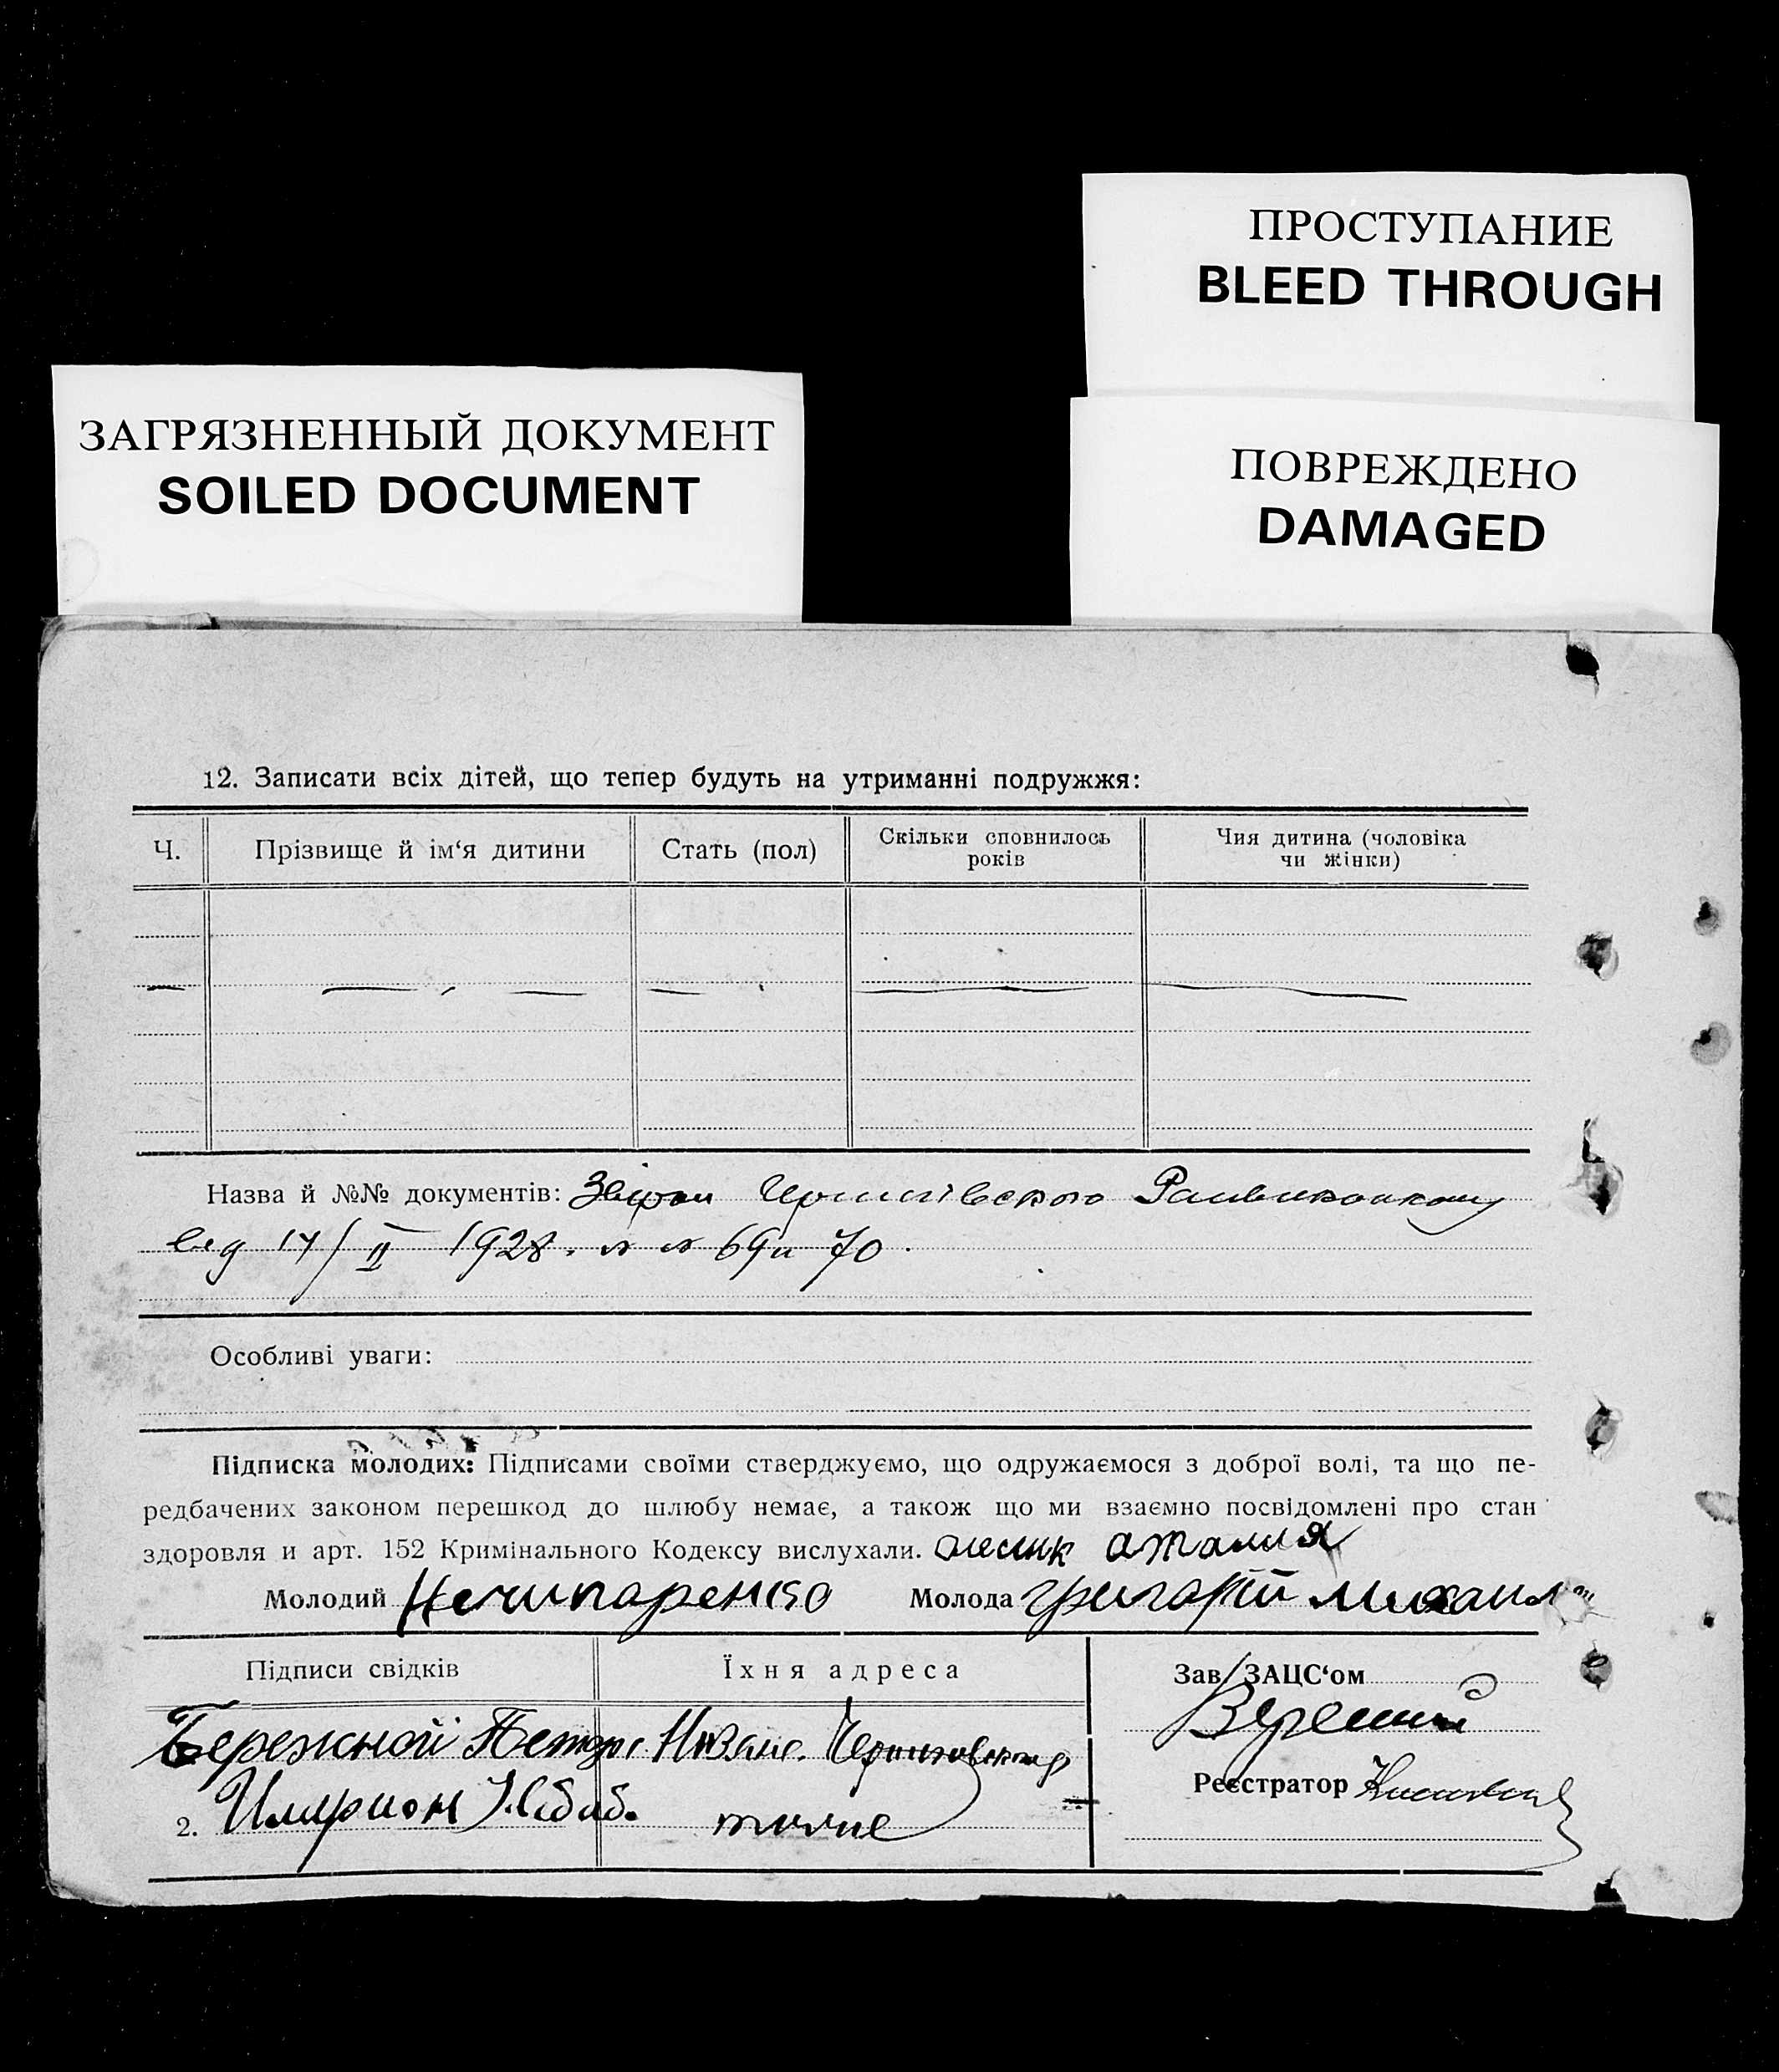 ПРОСТУПАНИЕ
BLEED THROUGH
ЗАГРЯЗНЕННЫЙ ДОКУМЕНТ
SOILED DOCUMENT
ПОВРЕЖДЕНО
DAMAGED
12. Записати всіх дітей, що тепер будуть на утриманні подружжя:
Ч. Прізвище й ім‘я дитини Стать (пол) Скільки сповнилось років Чия дитина (чоловіка чи жінки)
Назва й №№ документів:
від 17/II 1928. № № 69 и 70.
Особливі уваги:
Підписка молодих: Підписами своїми стверджуємо, що одружаємося з доброї волі, та що пе-
редбачених законом перешкод до шлюбу немає, а також що ми взаємно посвідомлені про стан
здоровля и арт. 152 Кримінального Кодексу вислухали.
Молодий Нечипаренко Молода григорій
Підписи свідків Їхня адреса Зав. ЗАЦС‘ом
Бережной Петро
Реєстратор
2. Иларион